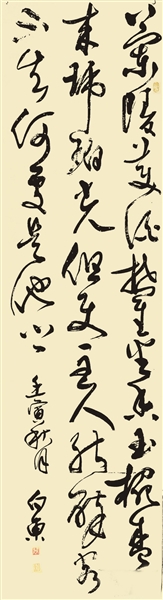 蘭陵美酒鬱金香玉椀盛
来琥珀光但使主人能醉客
不知何處是他鄉
壬寅秋月